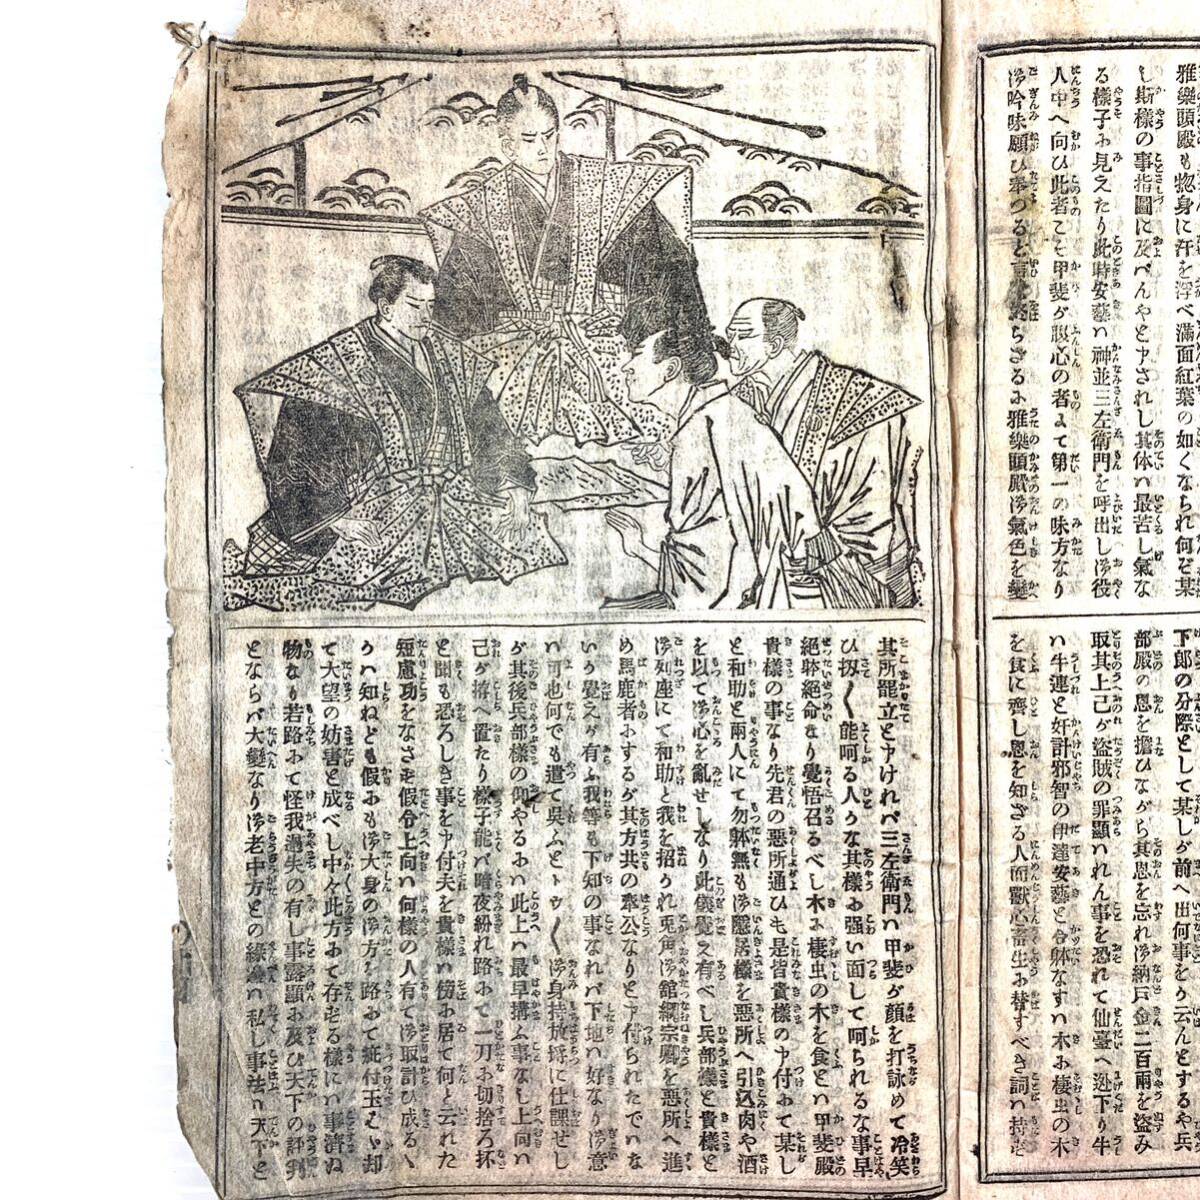 雅樂頭殿も惣身に汗を浮べ滿面紅葉の如くなられ何ぞ某
し斯樣の事指圖に及べんやとヤされし其体ハ最苦し氣な
る樣子ふ見えたり此時安藝ハ神並三左衛門を呼出し御役
人中へ向ひ此者こそ甲斐が腹心の者よて第一の味方なり
御吟味願ひ奉つると言も終らざるふ雅樂頭殿御氣色を變
下郎の分際として某しが前へ出何事を云んとするや兵
部殿の恩を擔ひながら其恩を忘れ御納戸金二百兩を盜み
取其上己が盜賊の罪顯ハれん事を恐れて仙臺へ迯下り牛
ハ牛連と奸計邪智の伊達安藝と合躰なすハ木ふ棲虫の木
を食に齊し恩を知ざる人面獸心畜生ふ替すべき詞ハ持ぞ
其所罷立とヤけれバ三左衛門ハ甲斐が顔を打詠めて冷笑
ひ扨〱能呵る人かな其樣ふ强い面して呵られるな事早
絶躰絶命なり覺悟召るべし木ふ棲虫の木を食とハ甲斐殿
貴樣の事なり先君の悪所通ひも是皆貴樣のヤ付ふて某し
と和助と兩人にて勿躰無も御隱居樣を悪所へ引込肉や酒
を以て御心を亂せしなり此儀覺え有べし兵部樣と貴樣と
御列座にて和助と我を招かれ兎角御舘綱宗卿を悪所へ進
め馬鹿者ふするが其方共の奉公なりとヤ付られたでハな
いか覺えが有ふ我等も下知の事なれバ下地ハ好なり御意
ハ可也何でも遣て呉ふとトウ〱御身持放埒に仕課せし
が其後兵部樣の仰やるふハ此上ハ最早搆ふ事なし上向ハ
己が拵へ置たり樣子能バ暗夜紛れ路ふて一刀ふ切捨ろ抔
と聞も恐ろしき事をヤ付夫を貴樣ハ傍ふ居て何と云れた
短慮功をなさぞ假令上向ハ何樣の人有て御取計ひ成るべ
かハ知ねども假ふも御大身の御方を路ふて疵付玉むバ却
て大望の妨害と成べし中々此方ふて存ぞる樣にハ事濟ぬ
物なり若路ふて怪我過失の有し事露顯ふ及び天下の評判
とならバ大變なり御老中方との緣邊ハ私し事法ハ天下と